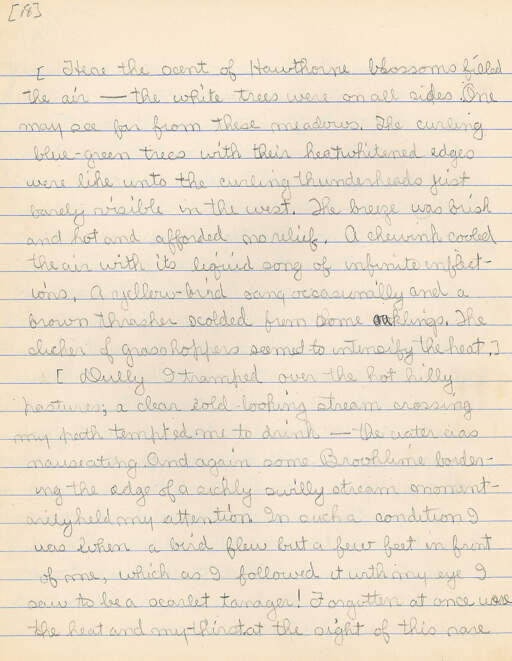 [18]
[ Here the scent of Hawthorne blossoms filled
the air — the white trees were on all sides. One
may see far from these meadows. The curling
blue-green trees with their heatwhitened edges
were like unto the curling thunderheads just
barely visible in the west. The breeze was brisk
and hot and afforded no relief. A chewink cooled
the air with its liquid song of infinite inflect-
ions. A yellow-bird sang occasionally and a
brown thrasher scolded from some oaklings. The
clicker of grasshoppers seemed to intensify the heat.]
[ Dully I tramped over the hot hilly
pastures; a clear cold-looking stream crossing
my path tempted me to drink — the water was
nauseating. And again some Brooklime border-
ing the edge of a sickly swilly stream moment-
arily held my attention. In such a condition I
was when a bird flew but a few feet in front
of me, which as I followed it with my eye I
saw to be a scarlet tanager! Forgotten at once were
the heat and my thirst at the sight of this rare